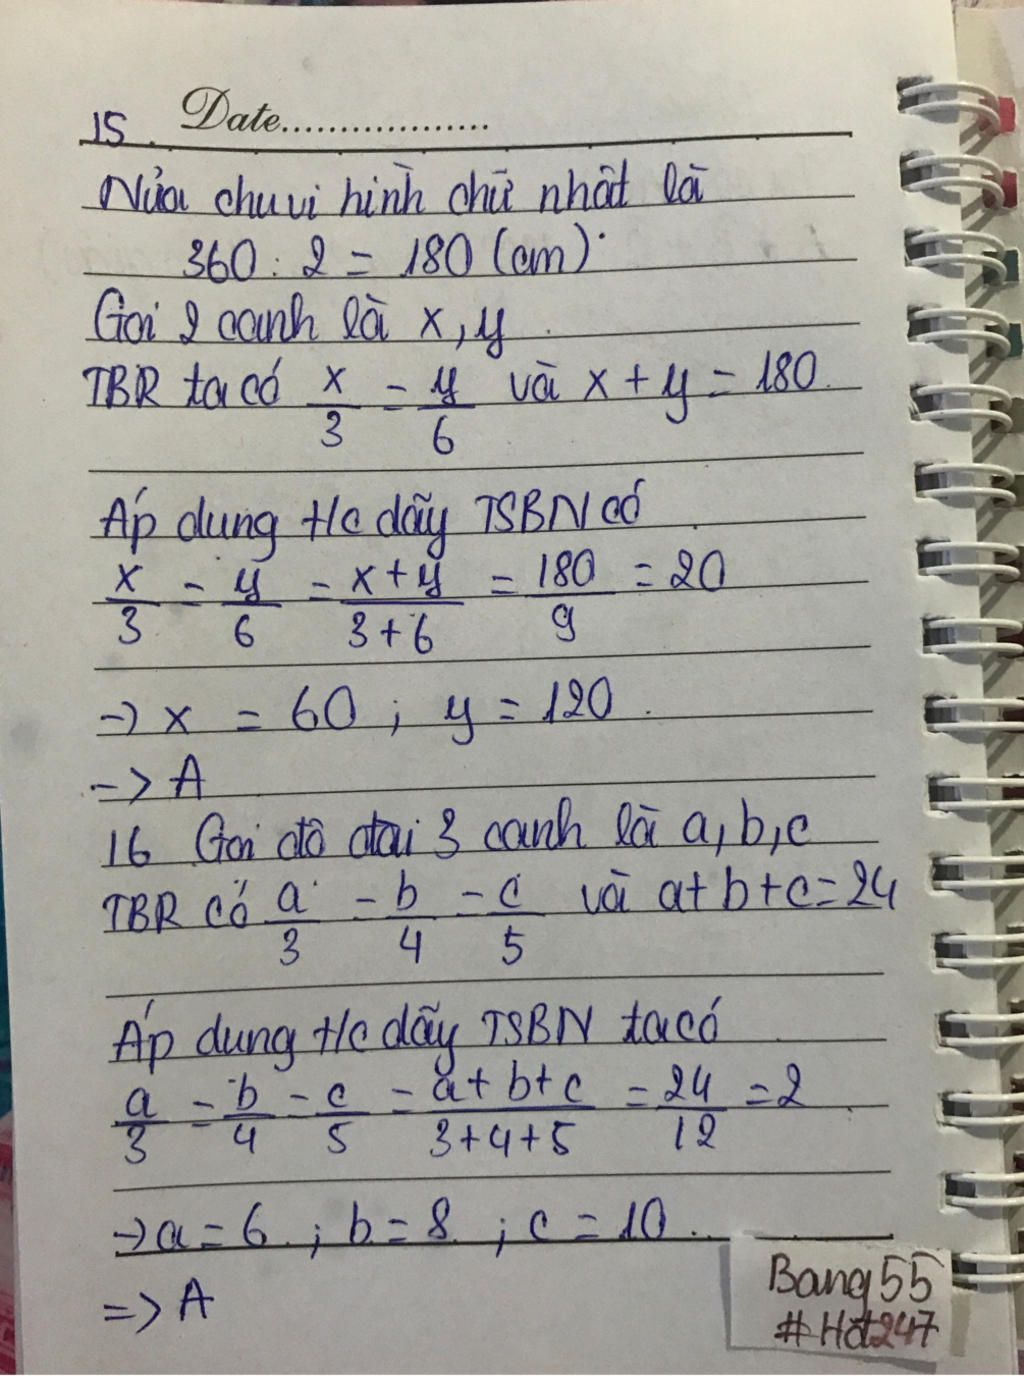 15. Date...................
Nửa chu vi hình chữ nhật là
360 : 2 = 180 (cm)
Gọi 2 cạnh là x, y
TBR ta có x/3 = y/6 và x + y = 180
Áp dụng t/c dãy TSBN có
x/3 = y/6 = x+y/3+6 = 180/9 = 20
-> x = 60 ; y = 120.
-> A
16 Gọi độ dài 3 cạnh là a, b, c
TBR có a/3 = b/4 = c/5 và a+b+c=24
Áp dụng t/c dãy TSBN ta có
a/3 = b/4 = c/5 = a+b+c/3+4+5 = 24/12 = 2
-> a = 6 ; b = 8 ; c = 10
=> A
Bang55
#Hot247